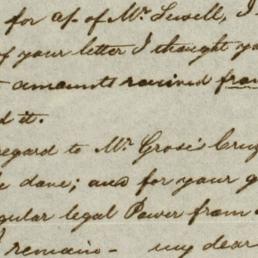 for a/c of Mr. Sewell, I
of your letter I thought yo
amounts received from
d it.
regard to Mr. Grose's
e done; and for your g
gular legal Power from
I remain - my dear